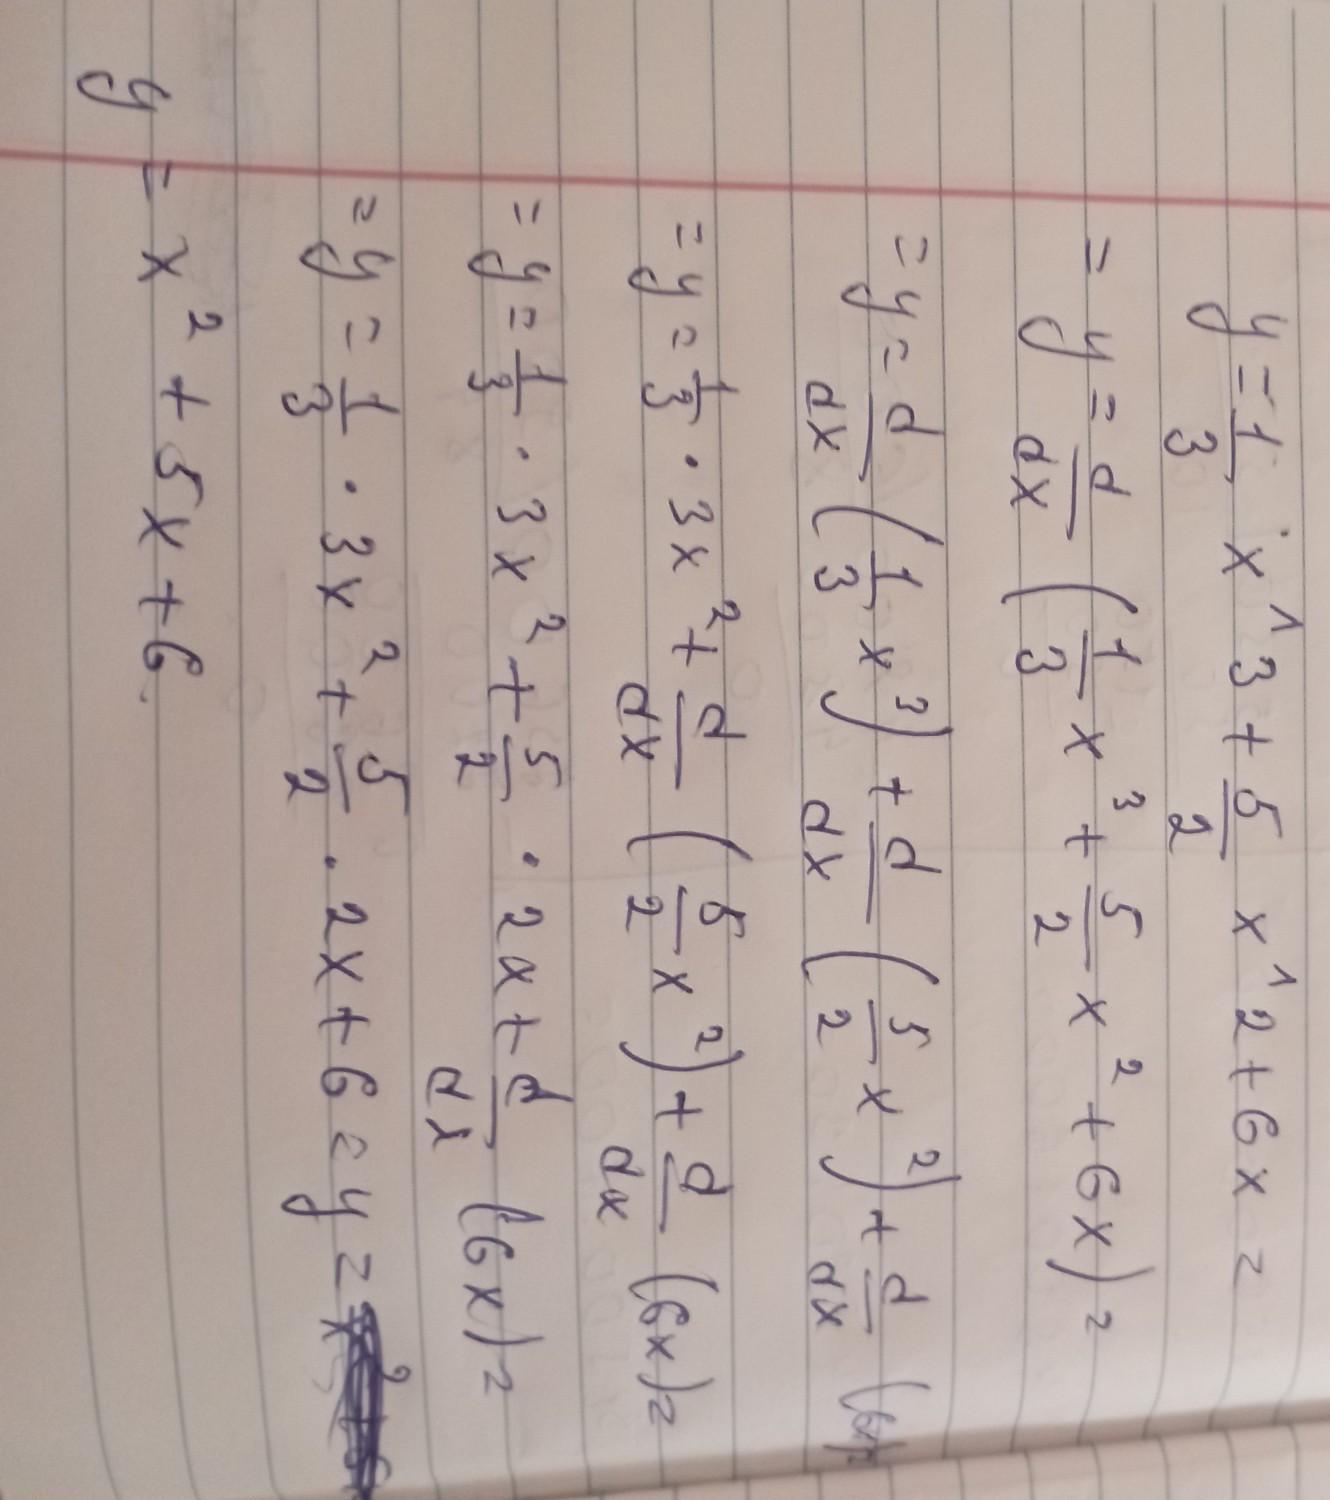 y = 1/3 x^3 + 5/2 x^2 + 6x =
= y = d/dx (1/3 x³ + 5/2 x² + 6x) =
= y = d/dx (1/3 x³) + d/dx (5/2 x²) + d/dx (6x) =
= y = 1/3 · 3x² + d/dx (5/2 x²) + d/dx (6x) =
= y = 1/3 · 3x² + 5/2 · 2x + d/dx (6x) =
= y = 1/3 · 3x² + 5/2 · 2x + 6 = y =
y = x² + 5x + 6.